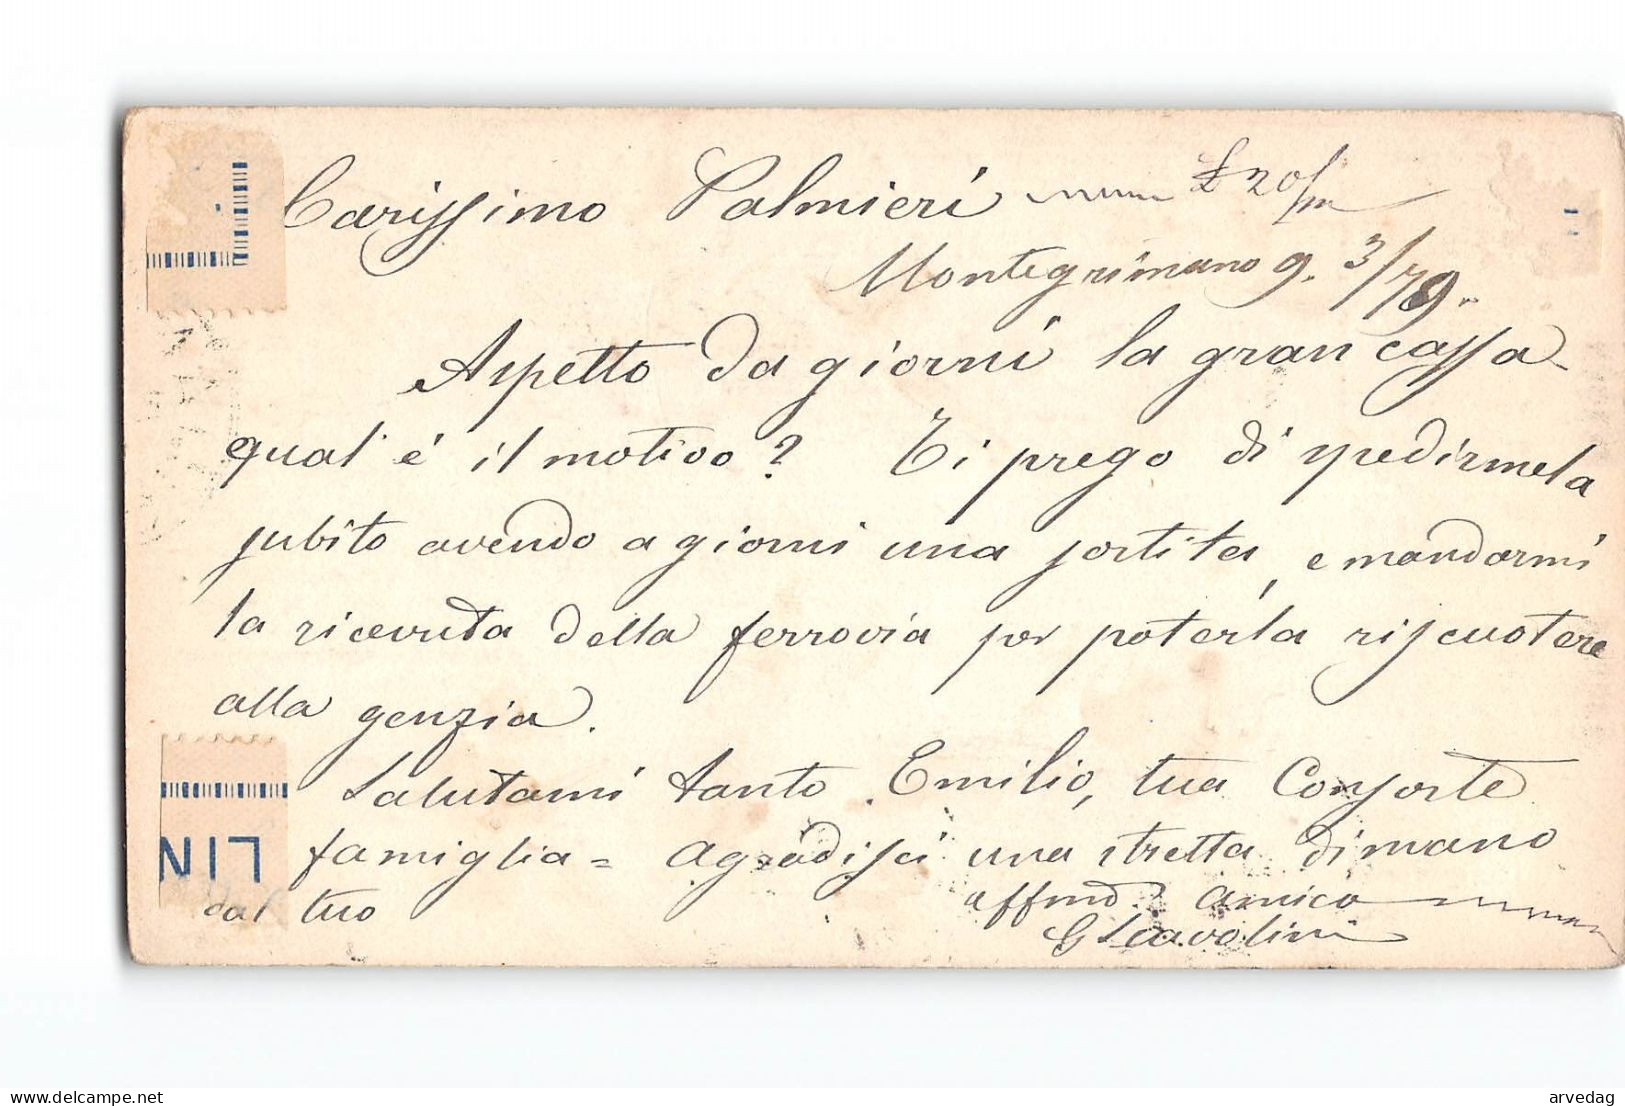 Carissimo Palmieri £ 20/m
Montegrimano 9. 3/79.
Aspetto da giorni la gran cassa
qual' è il motivo? Ti prego di spedirmela
subito avendo a giorni una sortita, e mandarmi
la ricevuta della ferrovia per poterla riscuotere
alla genzia.
Salutami tanto Emilio, tua Consorte
famiglia = Agradisci una stretta di mano
dal tuo affmo. amico
G Scavolini
LIN
delcampe.net
arvedag